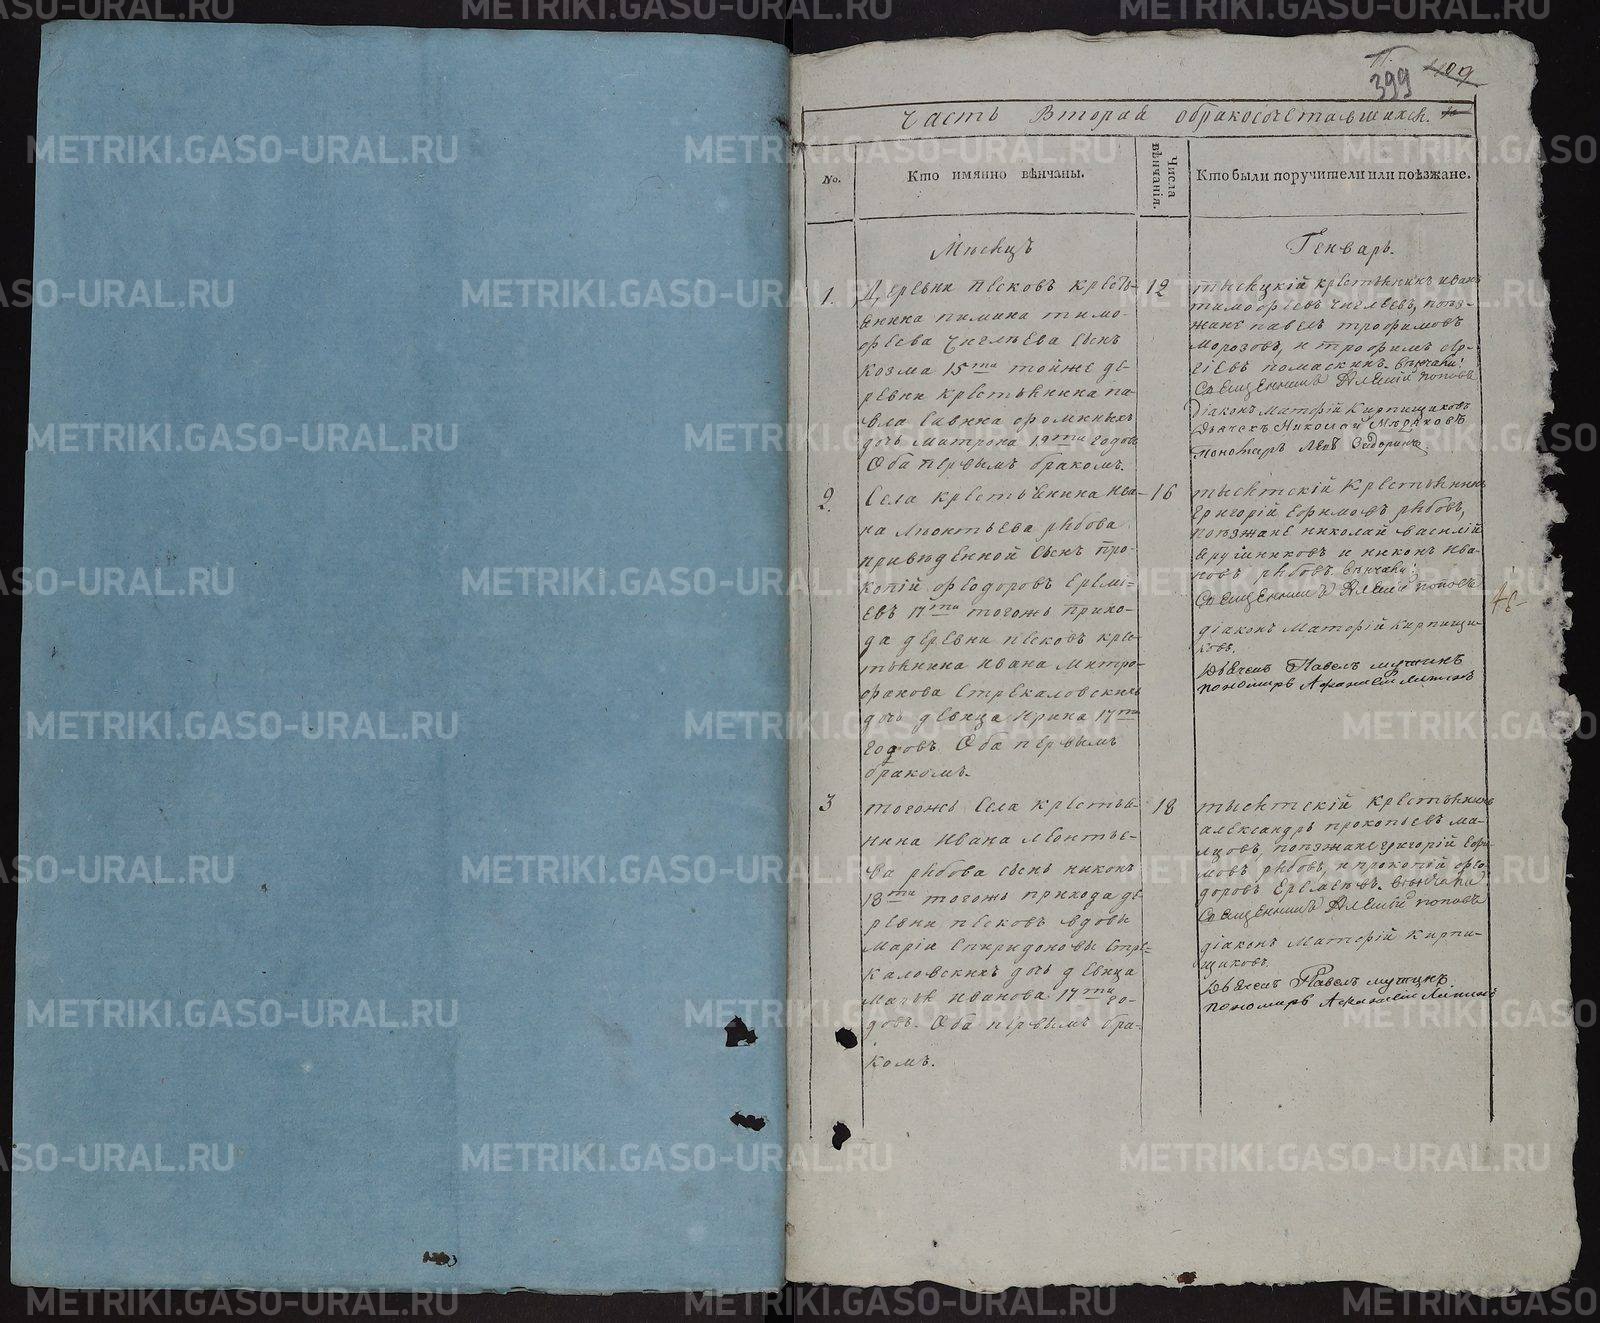 399 409
Часть Вторая обракосочетавшихся.
No.
Кто имянно вѣнчаны.
Числа вѣнчанія.
Кто были поручители или поѣзжане.
Мѣсяцъ
Генварь.
1.
Деревни песковъ кресть-
янина пимина тимо-
ѳеева сынъ
козма 15ти тойже де-
ревни крестьянина па-
вла Савина ѳоминыхъ
дочь матрона 19ти годовъ
Оба первымъ бракомъ.
12
тысяцкій крестьянинъ иванъ
тимоѳеевъ, поѣз-
жане павелъ трофимовъ
морозовъ, и трофимъ
вѣнчали:
Священникъ Алексій поповъ
Діаконъ Кирпищиковъ
Дьячекъ Николай
пономарь Левъ Сидоринъ
2.
Села крестьянина ива-
на Леонтьева рябова
приведенной сынъ про-
копій ѳеодоровъ ереме-
евъ 17ти тогожь прихо-
да деревни песковъ крес-
тьянина ивана митро-
фанова Стрекаловскихъ
дочь девица ирина 17ти
годовъ. Оба первымъ
бракомъ.
16
тысятскій крестьянинъ
григорій ефимовъ рябовъ,
поѣзжане николай василій
и никонъ ива-
новъ рябовъ вѣнчали:
Священникъ Алексій поповъ
діаконъ кирпищи-
ковъ.
Дьячекъ Павелъ
пономарь Афанасій
3
тогожь Села крестья-
нина ивана леонтье-
ва рябова сынъ никонъ
18ти тогожь прихода де-
ревни песковъ вдовы
маріи Спиридоновы Стре-
каловскихъ дочь девица
иванова 17ти го-
довъ. Оба первымъ бра-
комъ.
18
тысятскій крестьянинъ
александръ прокопьевъ ма-
поѣзжане григорій ефи-
мовъ рябовъ, и прокопій ѳео-
доровъ Еремеевъ. вѣнчали
Священникъ Алексій поповъ
діаконъ кирпи-
щиковъ.
Дьячекъ Павелъ
пономарь Афанасій
METRIKI.GASO-URAL.RU